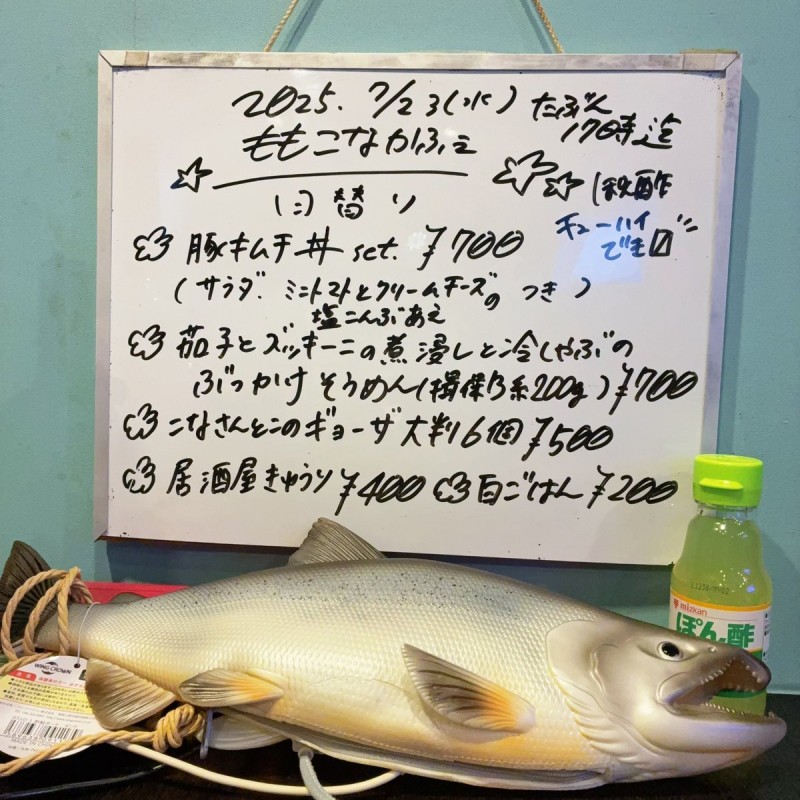 2025. 7/23(水) たぶん
17時迄
ももこなかふぇ
日替り
ぽん酢
チューハイ
でき〼
豚キムチ丼 set. ¥700
(サラダ. ミニトマトとクリームチーズの つき)
塩こんぶあえ
茄子とズッキーニの煮浸しと冷しゃぶの
ぶっかけ そうめん(揖保乃糸200g) ¥700
こなさんとこのギョーザ 大判6個 ¥500
居酒屋きゅうり ¥400 白ごはん ¥200
mizkan
ぽん酢
WING CROWN